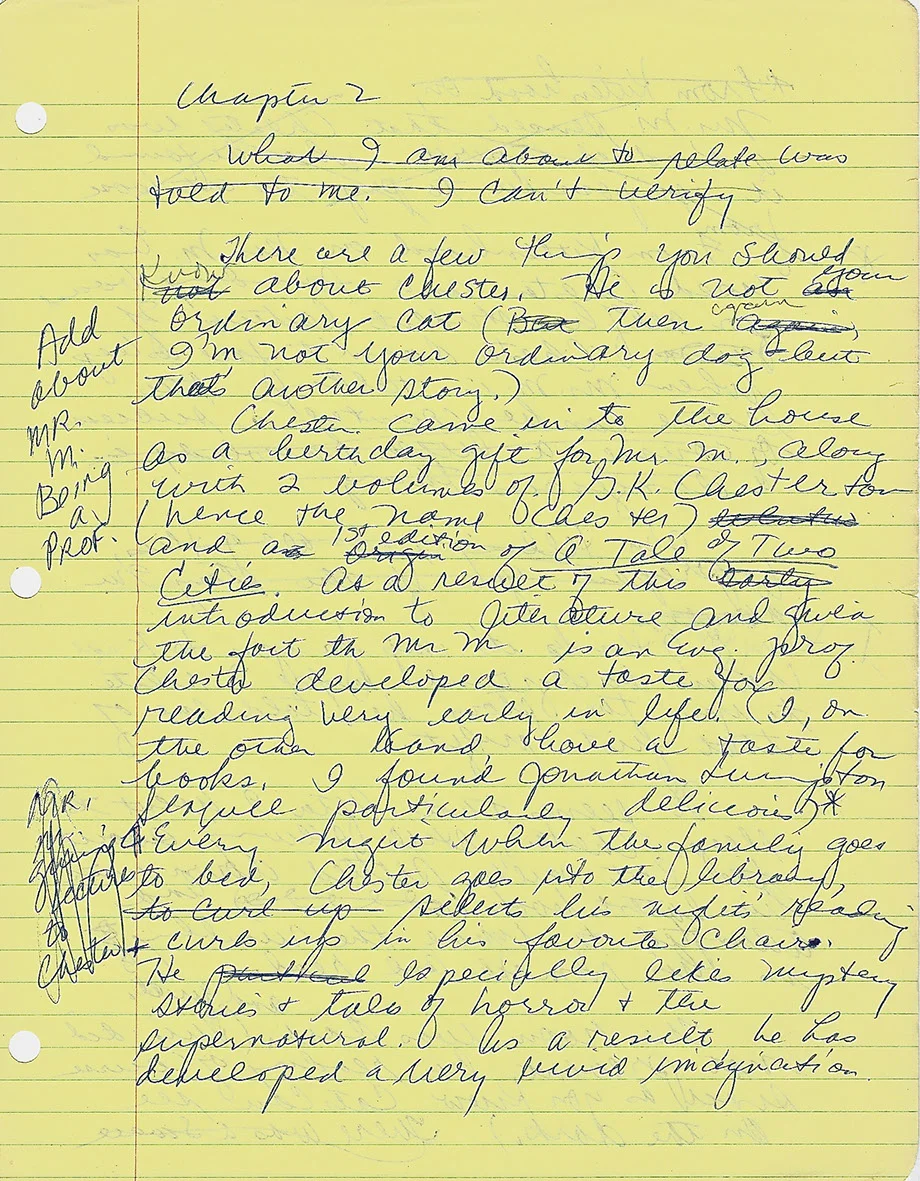 Chapter 2
What I am about to relate was
told to me. I can't verify
There are a few things you should
Know
not about Chester. He is not an your
ordinary cat (But then again again,
I'm not your ordinary dog but
that's another story.)
Chester came in to the house
as a birthday gift for Mr. M., along
with 2 volumes of G.K. Chesterton
(hence the name Chester)
and a 1st edition Origin of A Tale of Two
Cities. As a result of this early
introduction to literature and given
the fact th Mr M. is an Eng. prof.
Chester developed a taste for
reading very early in life. (I, on
the other hand have a taste for
books. I found Jonathan Livingston
Seagull particularly delicious)*
Every night when the family goes
to bed, Chester goes into the library,
to curl up selects his night's reading
+ curls up in his favorite chair.
He especially likes mystery
stories + tales of horror + the
supernatural. As a result he has
developed a very vivid imagination.
Add
about
MR.
M.
Being
a
Prof.
Mr.
M.
lectures
to
Chester